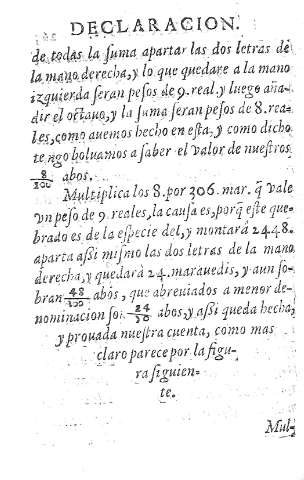 DECLARACION.
de todas la suma apartar las dos letras de
la mano derecha, y lo que quedare a la mano
izquierda seran pesos de 9. real. y luego aña-
dir el octauo, y la suma seran pesos de 8. rea-
les, como auemos hecho en esta, y como dicho
tengo boluamos a saber el valor de nuestros
8/100 abos.
Multiplica los 8. por 306. mar. q̃ vale
vn peso de 9. reales, la causa es, porq̃ este que-
brado es de la especie del, y montará 2448.
aparta assi mismo las dos letras de la mano
derecha, y quedará 24. marauedis, y aun so-
bran 48/100 abos, que abreuiados a menor de-
nominacion son abos, y assi queda hecha,
y prouada nuestra cuenta, como mas
claro parece por la figu-
ra siguien-
te.
Mul-